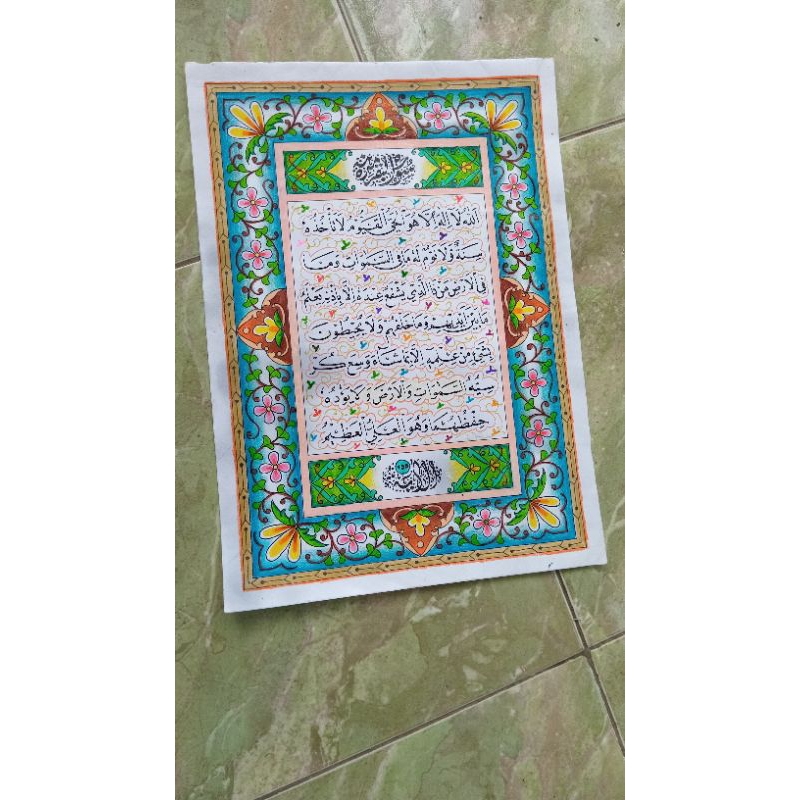 سورة البقرة
الله لا إله إلا هو الحي القيوم لا تأخذه
سنة ولا نوم له ما في السموات وما
في الأرض من ذا الذي يشفع عنده إلا بإذنه يعلم
ما بين أيديهم وما خلفهم ولا يحيطون
بشيء من علمه إلا بما شاء وسع كر
سيه السموات والأرض ولا يؤده
حفظهما وهو العلي العظيم
الآية